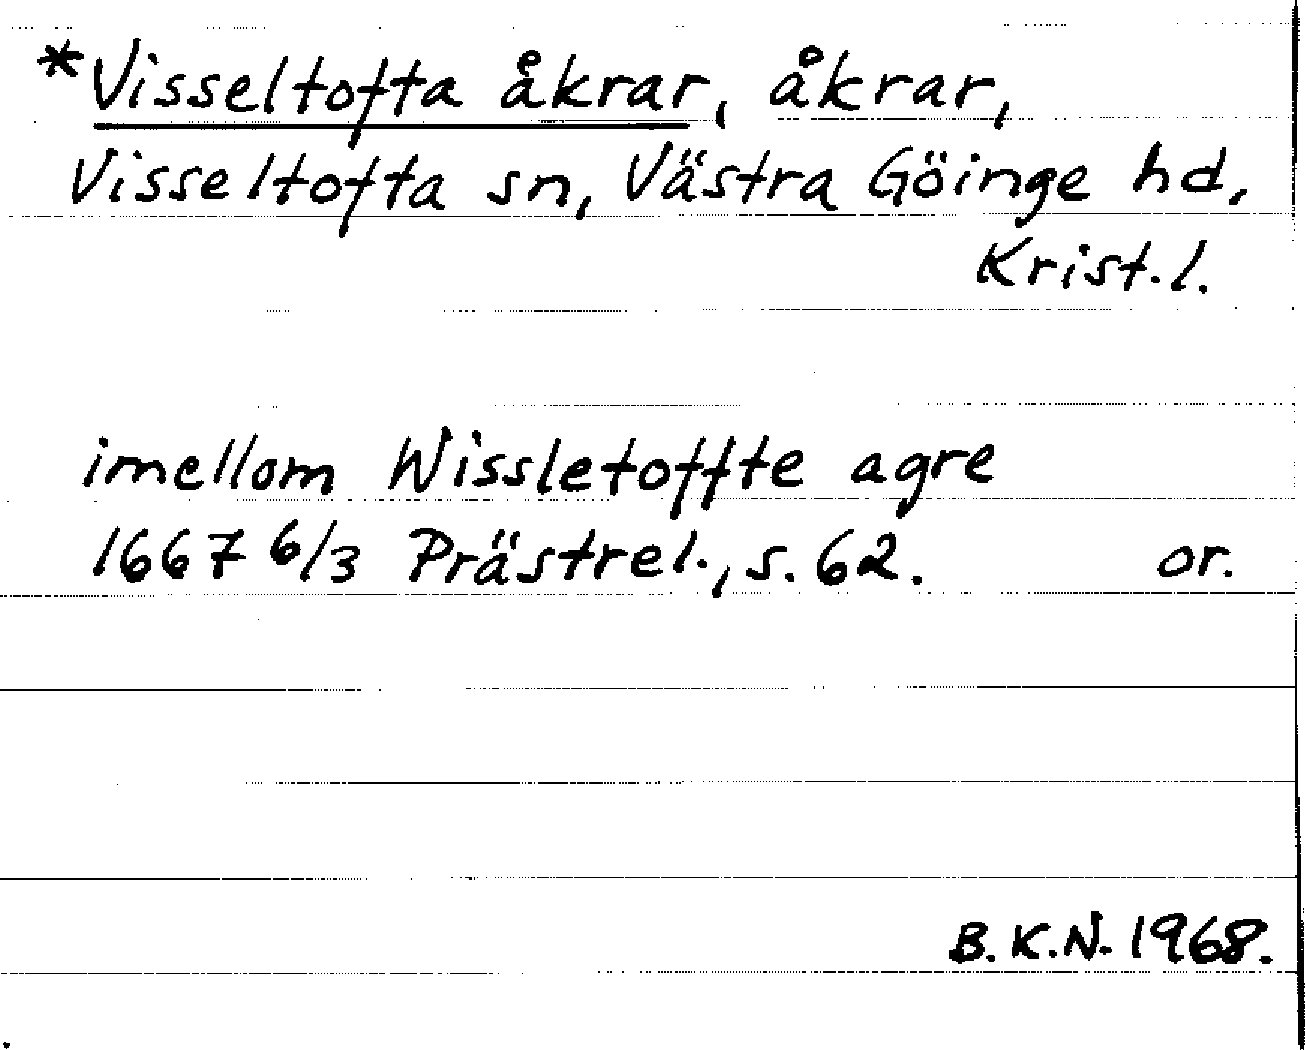 *Visseltofta åkrar, åkrar,
Visseltofta sn, Västra Göinge hd,
Krist.l.
imellom Wissletoffte agre
1667 6/3 Prästrel., s. 62. or.
B.K.N. 1968.